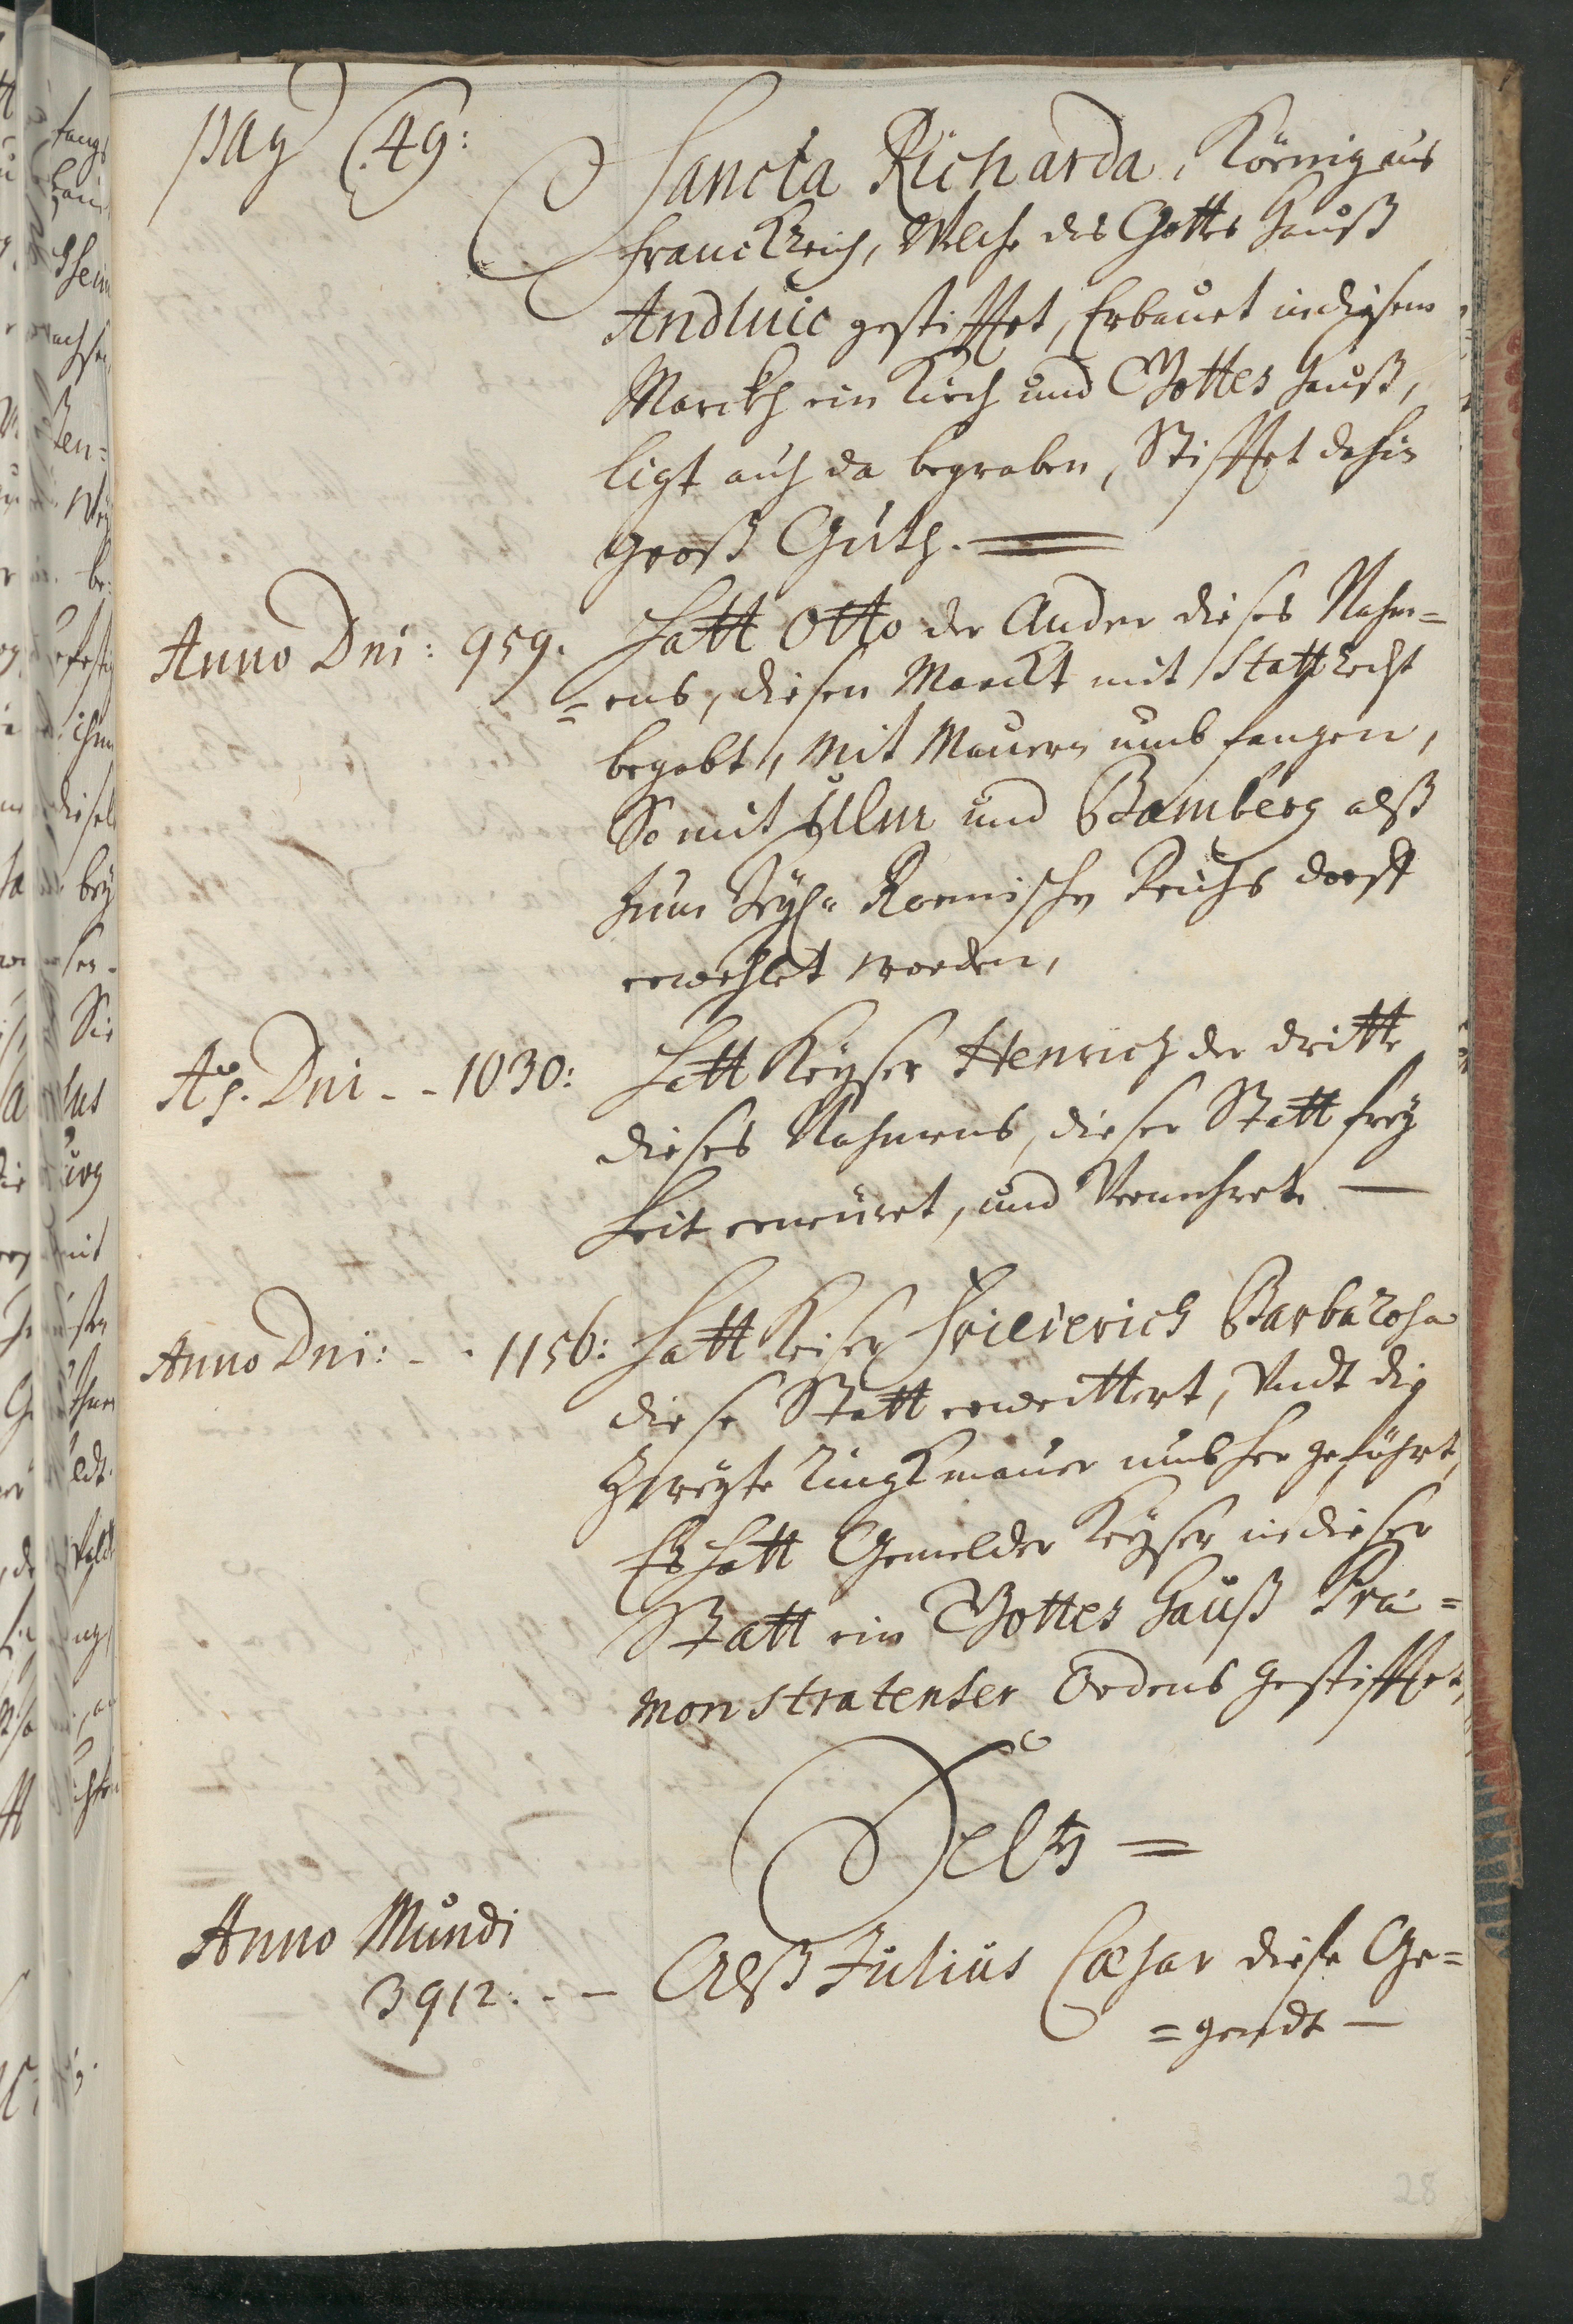 pag (49:
Sancta Richarda, Köenig aus
franckReich, Welche des Gottes Hauß
Andluic gestifftet, Erbauet in diesem
Marckh ein Kirch und Gottes Hauß,
ligt auch da begraben, Stifftet dahin
groß Guth.
Anno Dni: 959. Hatt Otto der Ander dieses Nahm=
=ens, diesen Marckt mit Statt Recht
begabt, Mit Mauern umbfangen,
So mit Ulm und Bamberg alß
zum Heyl: Roemischen Reichs dorff
erwehlet worden,
Ao. Dni - - 1030: Hatt Keyser Henrich der dritte
dieses Nahmens, dieser Statt frey
heit erneüret, und Vermehret —
Anno Dni: - - 1156: Hatt Keiser Friederich Barbarosa
diese Statt erweittert, Undt die
Zweyte Ringkmauer umbher geführt,
Es hatt Gemelder Keyser in dieser
Statt ein Gottes Hauß Præ=
monstratenser Ordens gestifftet,
Seltz =
Anno Mundi
3912: - - Alß Julius Cæsar diese Ge=
=gendt —
28